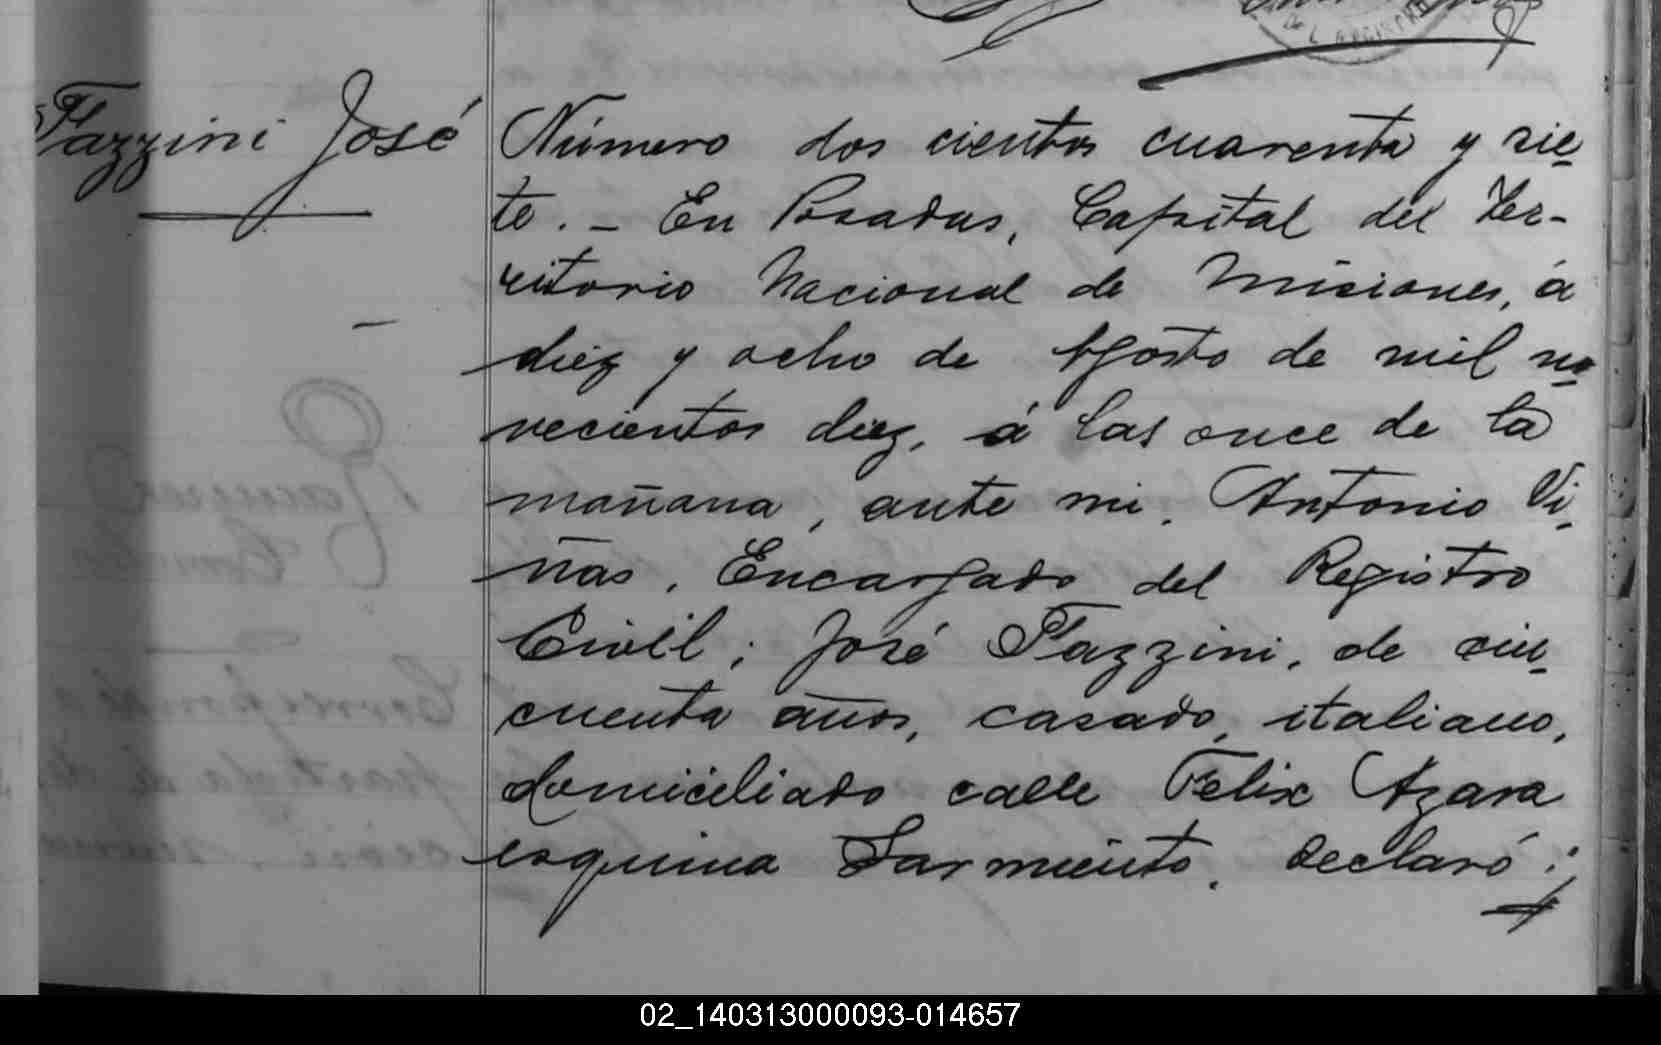 Fazzini José
Número dos cientos cuarenta y sie-
te. - En Posadas, Capital del Ter-
ritorio Nacional de Misiones, á
diez y ocho de Agosto de mil no-
vecientos diez, á las once de la
mañana, ante mi, Antonio Vi-
ñas, Encargado del Registro
Civil; José Fazzini, de cin-
cuenta años, casado, italiano,
domiciliado calle Felix Azara
esquina Sarmiento, declaró:
02_140313000093-014657